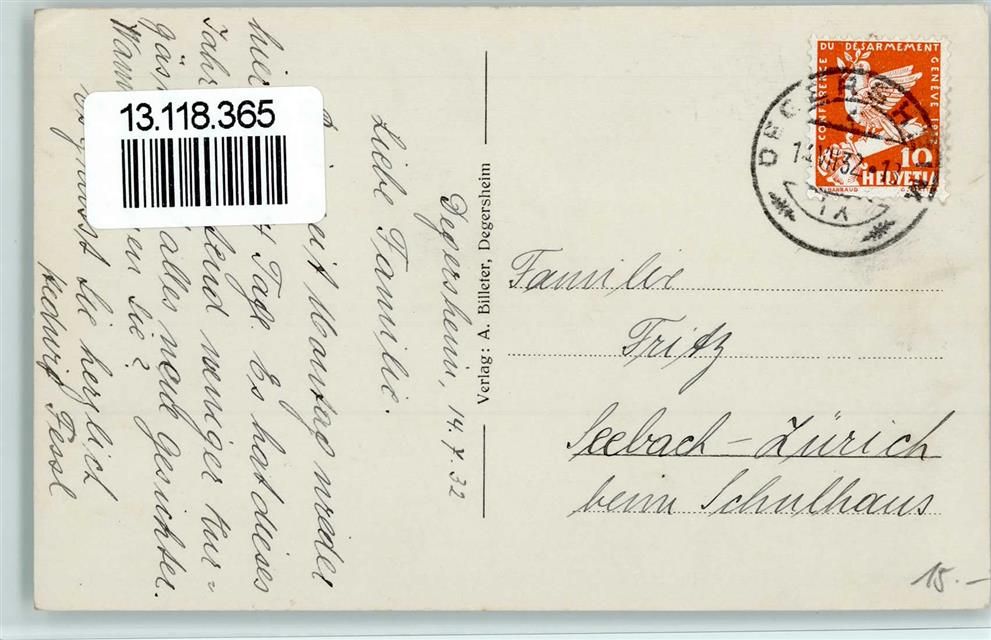 13.118.365
Degersheim, 14.7.32
Liebe Familie.
seit Montag wieder
hier 4 Tage. Es hat dieses
Jahr weniger Kur=
alles neue Gesichter.
Sie?
begrüsst Sie herzlich
Hedwig Fessl
Verlag: A. Billeter, Degersheim
CONFERENCE DU DESARMEMENT GENÈVE
10
HELVETIA
DEGERSHEIM
14.VII.32
Familie
Fritz
Seebach-Zürich
beim Schulhaus
15.-